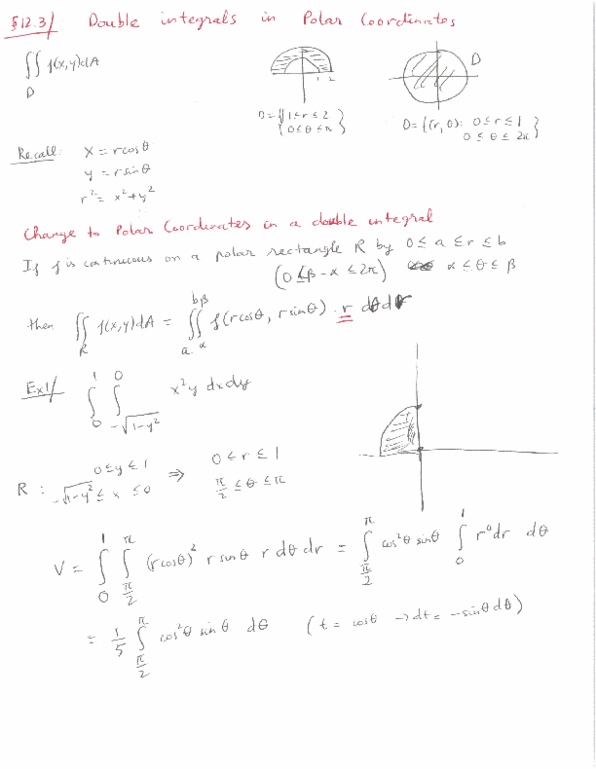 §12.3/ Double integrals in Polar Coordinates
∬_D f(x,y)dA
1 2
D={1≤r≤2
0≤θ≤π}
D
D={(r,θ): 0≤r≤1
0≤θ≤2π}
Recall: x = rcosθ
y = rsinθ
r² = x²+y²
Change to Polar Coordinates in a double integral
If f is continuous on a polar rectangle R by 0 ≤ a ≤ r ≤ b
(0 ≤ β-α ≤ 2π) α ≤ θ ≤ β
then ∬_R f(x,y)dA = ∫_a^b ∫_α^β f(rcosθ, rsinθ) · r dθdr
Ex1/ ∫_0^1 ∫_{-√(1-y²)}^0 x²y dxdy
R: 0≤y≤1 ⇒ 0≤r≤1
-√(1-y²) ≤ x ≤0 π/2 ≤ θ ≤ π
V = ∫_0^1 ∫_{π/2}^π (rcosθ)² rsinθ r dθdr = ∫_{π/2}^π cos²θ sinθ ∫_0^1 dr dθ
= 1/5 ∫_{π/2}^π cos²θ sinθ dθ (t = cosθ → dt = -sinθdθ)